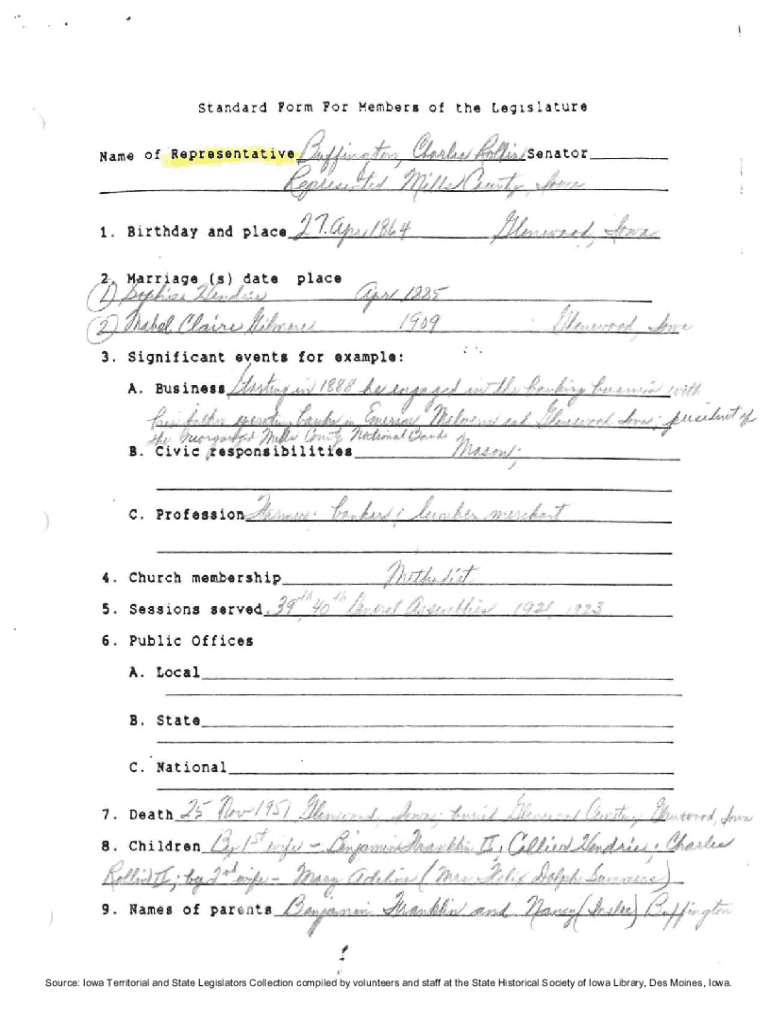 Standard Form For Members of the Legislature
Name of Representative Buffington, Charles Rollin Senator
Represented Mills County, Iowa
1. Birthday and place 27 April 1864 Glenwood, Iowa
2. Marriage (s) date place
1) Sophia Hendrie Apr 1885
2) Mabel Claire Gilmore 1909 Glenwood, Iowa
3. Significant events for example:
A. Business Starting in 1888 he engaged in the banking business with
his father operating banks in Emerson, Malvern and Glenwood Iowa; president of
the reorganized Mills County National Bank
B. Civic responsibilities Mason;
C. Profession Farmer; banker; lumber merchant
4. Church membership Methodist
5. Sessions served 39th, 40th General Assemblies 1921, 1923
6. Public Offices
A. Local
B. State
C. National
7. Death 25 Nov 1951 Glenwood, Iowa; buried Glenwood Cemetery, Glenwood, Iowa
8. Children By 1st wife - Benjamin Franklin II; Hendrie; Charles
Rollin II; by 2nd wife - Mary Adeline (Mrs. Felix Dolph Summers)
9. Names of parents Benjamin Franklin and Nancy (Inslee) Buffington
Source: Iowa Territorial and State Legislators Collection compiled by volunteers and staff at the State Historical Society of Iowa Library, Des Moines, Iowa.